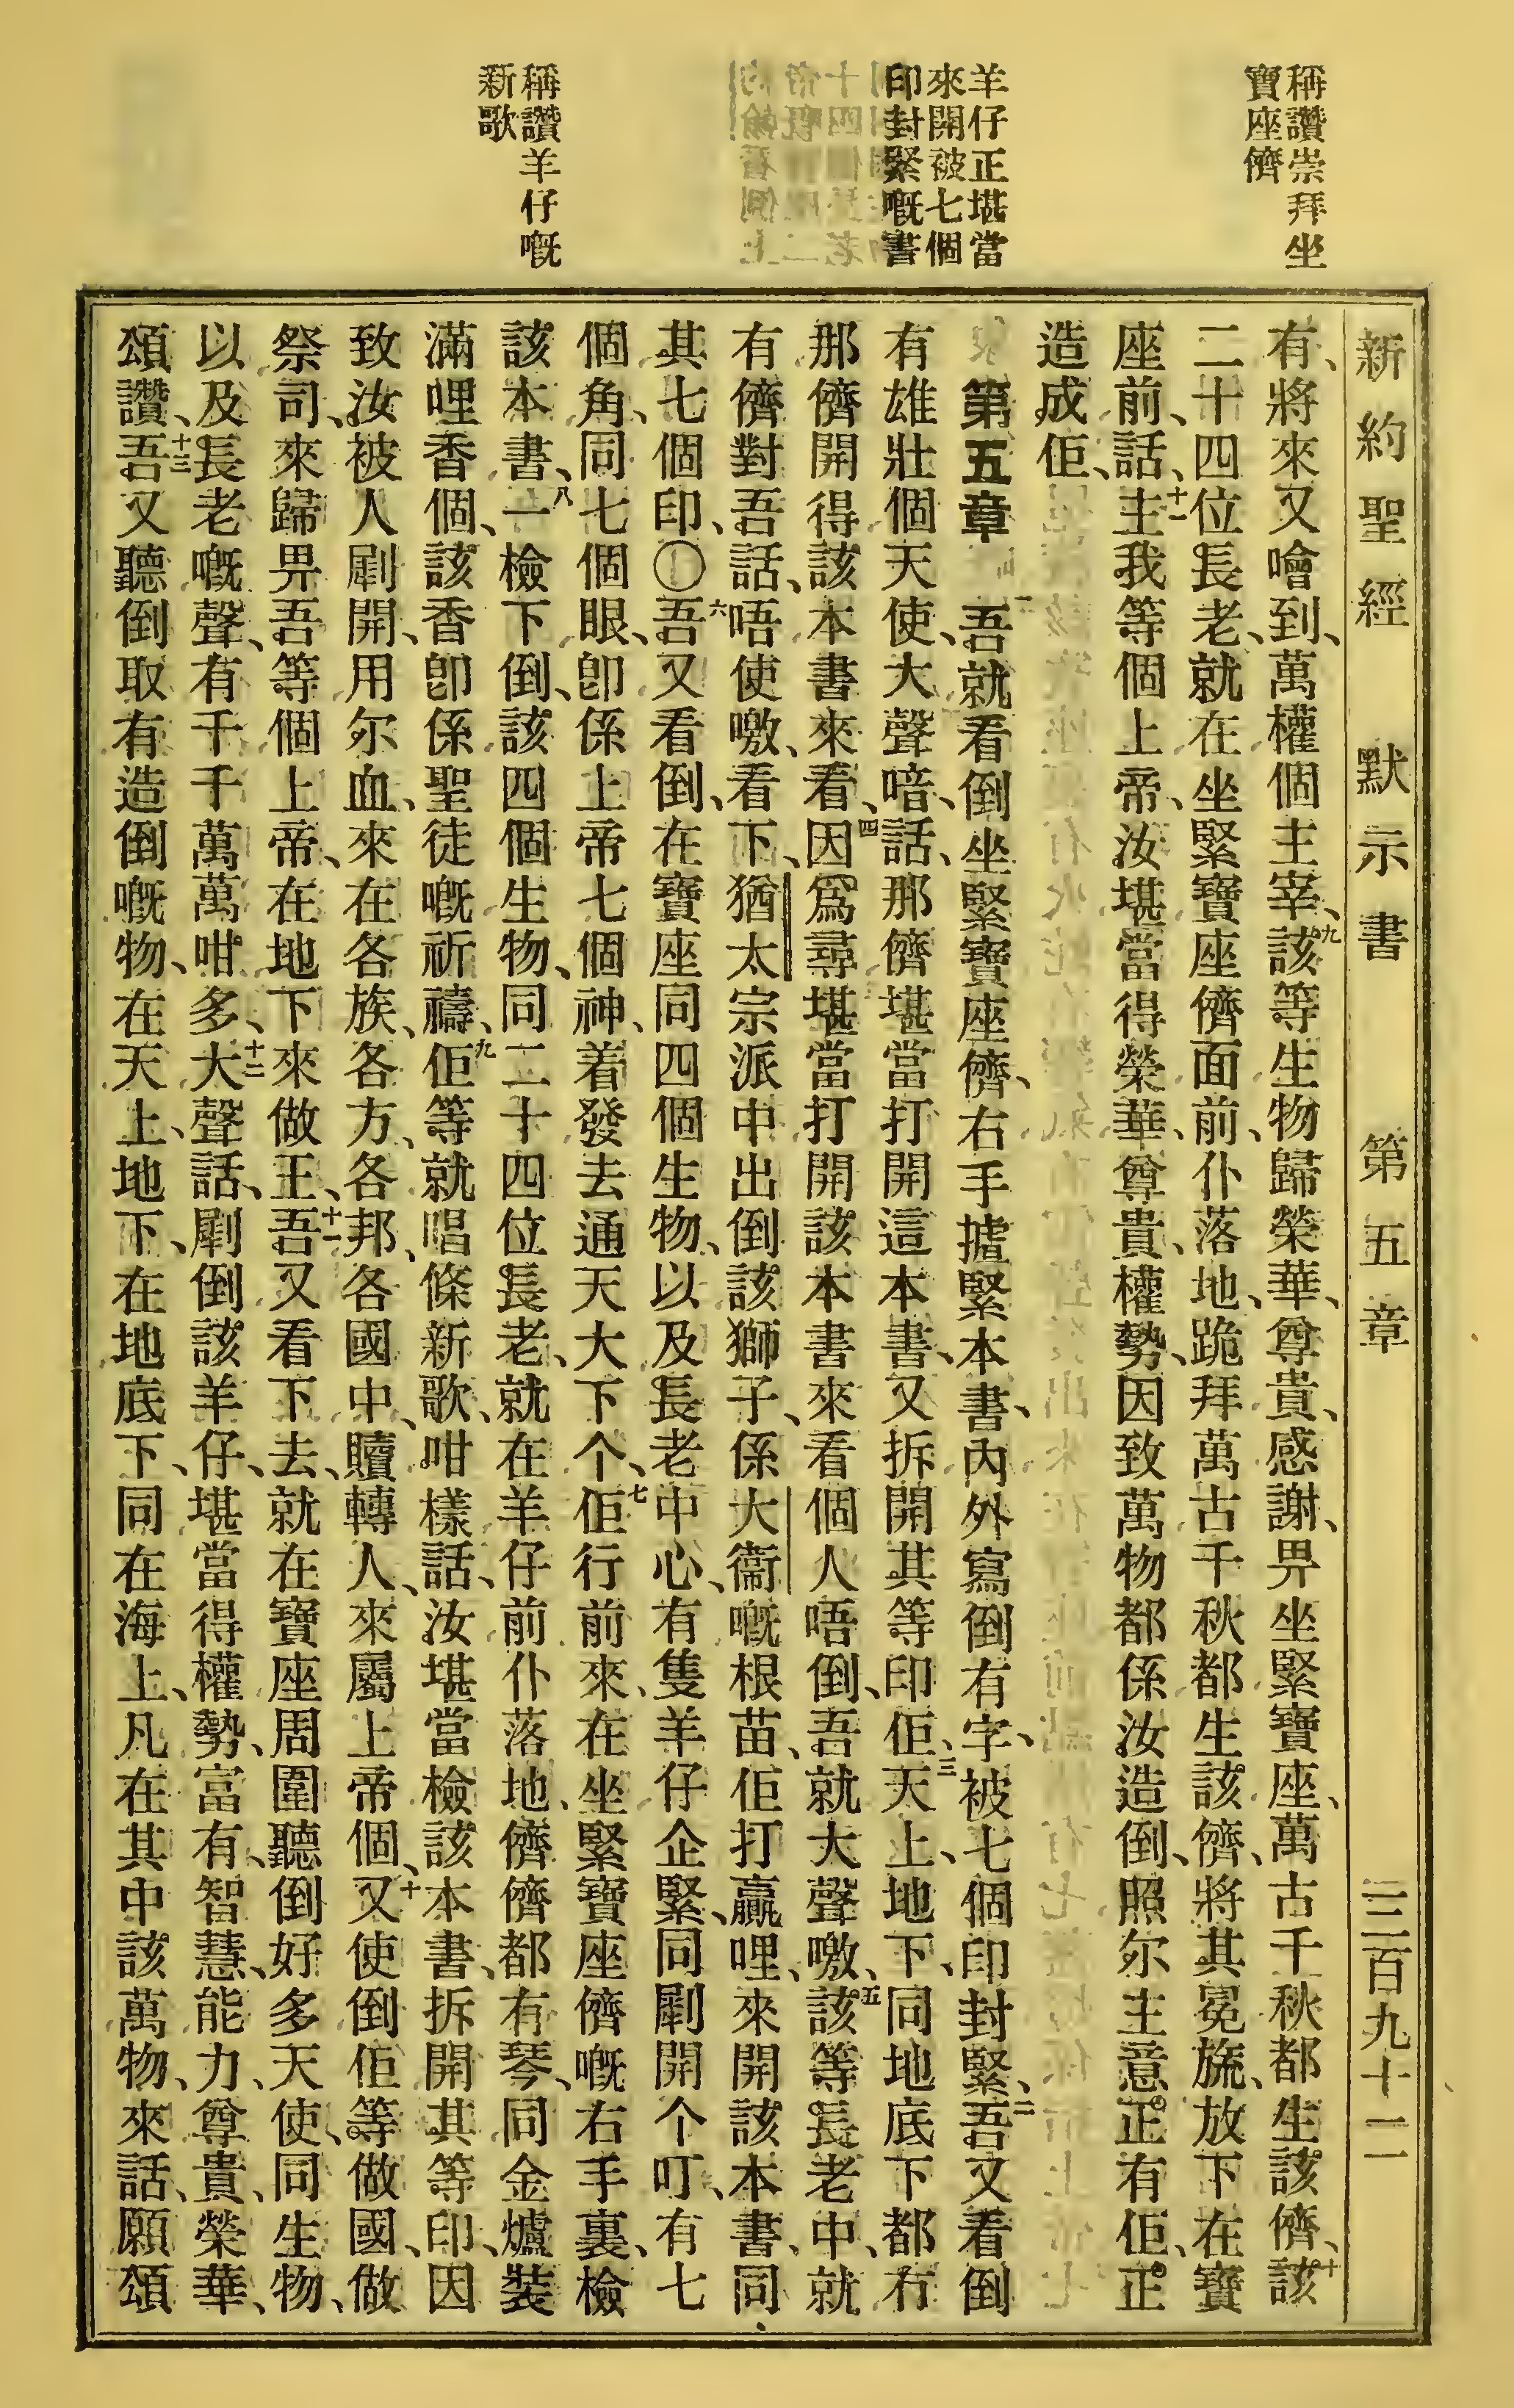 稱讚崇拜坐
寶座儕
羊仔正堪當
來開被七個
印封緊嘅書
稱讚羊仔嘅
新歌
新約聖經　默示書　第五章　三百九十二
有、將來又噲到、萬權個主宰、九該等生物歸榮華、尊貴、感謝、畀坐緊寶座、萬古千秋都生該儕、十該
二十四位長老、就在坐緊寶座儕面前、仆落地、跪拜萬古千秋都生該儕、將其冕旒、放下在寶
座前、話、十一主我等個上帝、汝堪當得榮華、尊貴、權勢、因致萬物都係汝造倒、照尔主意正有佢、正
造成佢、
第五章　一吾就看倒坐緊寶座儕、右手摣緊本書、內外寫倒有字、被七個印封緊、二吾又看倒
有雄壯個天使、大聲喑、話、那儕堪當打開這本書、又拆開其等印佢、三天上、地下、同地底下都冇
那儕開得該本書來看、四因爲尋堪當打開該本書來看個人唔倒、吾就大聲噭、五該等長老中、就
有儕對吾話、唔使噭、看下、猶太宗派中出倒該獅子、係大衞嘅根苗、佢打贏哩、來開該本書、同
其七個印、〇六吾又看倒、在寶座同四個生物、以及長老中心、有隻羊仔企緊、同劅開个叮、有七
個角、同七個眼、卽係上帝七個神、着發去通天大下个、七佢行前來、在坐緊寶座儕嘅右手裏、檢
該本書、八一檢下倒、該四個生物、同二十四位長老、就在羊仔前仆落地、儕儕都有琴、同金爐裝
滿哩香個、該香卽係聖徒嘅祈禱、九佢等就唱條新歌、咁樣話、汝堪當檢該本書、拆開其等印、因
致汝被人劅開、用尔血、來在各族、各方、各邦、各國中、贖轉人、來屬上帝個、十又使倒佢等做國、做
祭司、來歸畀吾等個上帝、在地下來做王、十一吾又看下去、就在寶座周圍聽倒好多天使、同生物、
以及長老嘅聲、有千千萬萬咁多、十二大聲話、劅倒該羊仔、堪當得權勢、富有、智慧、能力、尊貴、榮華、
頌讚、十三吾又聽倒取有造倒嘅物、在天上、地下、在地底下、同在海上、凡在其中該萬物、來話、願頌